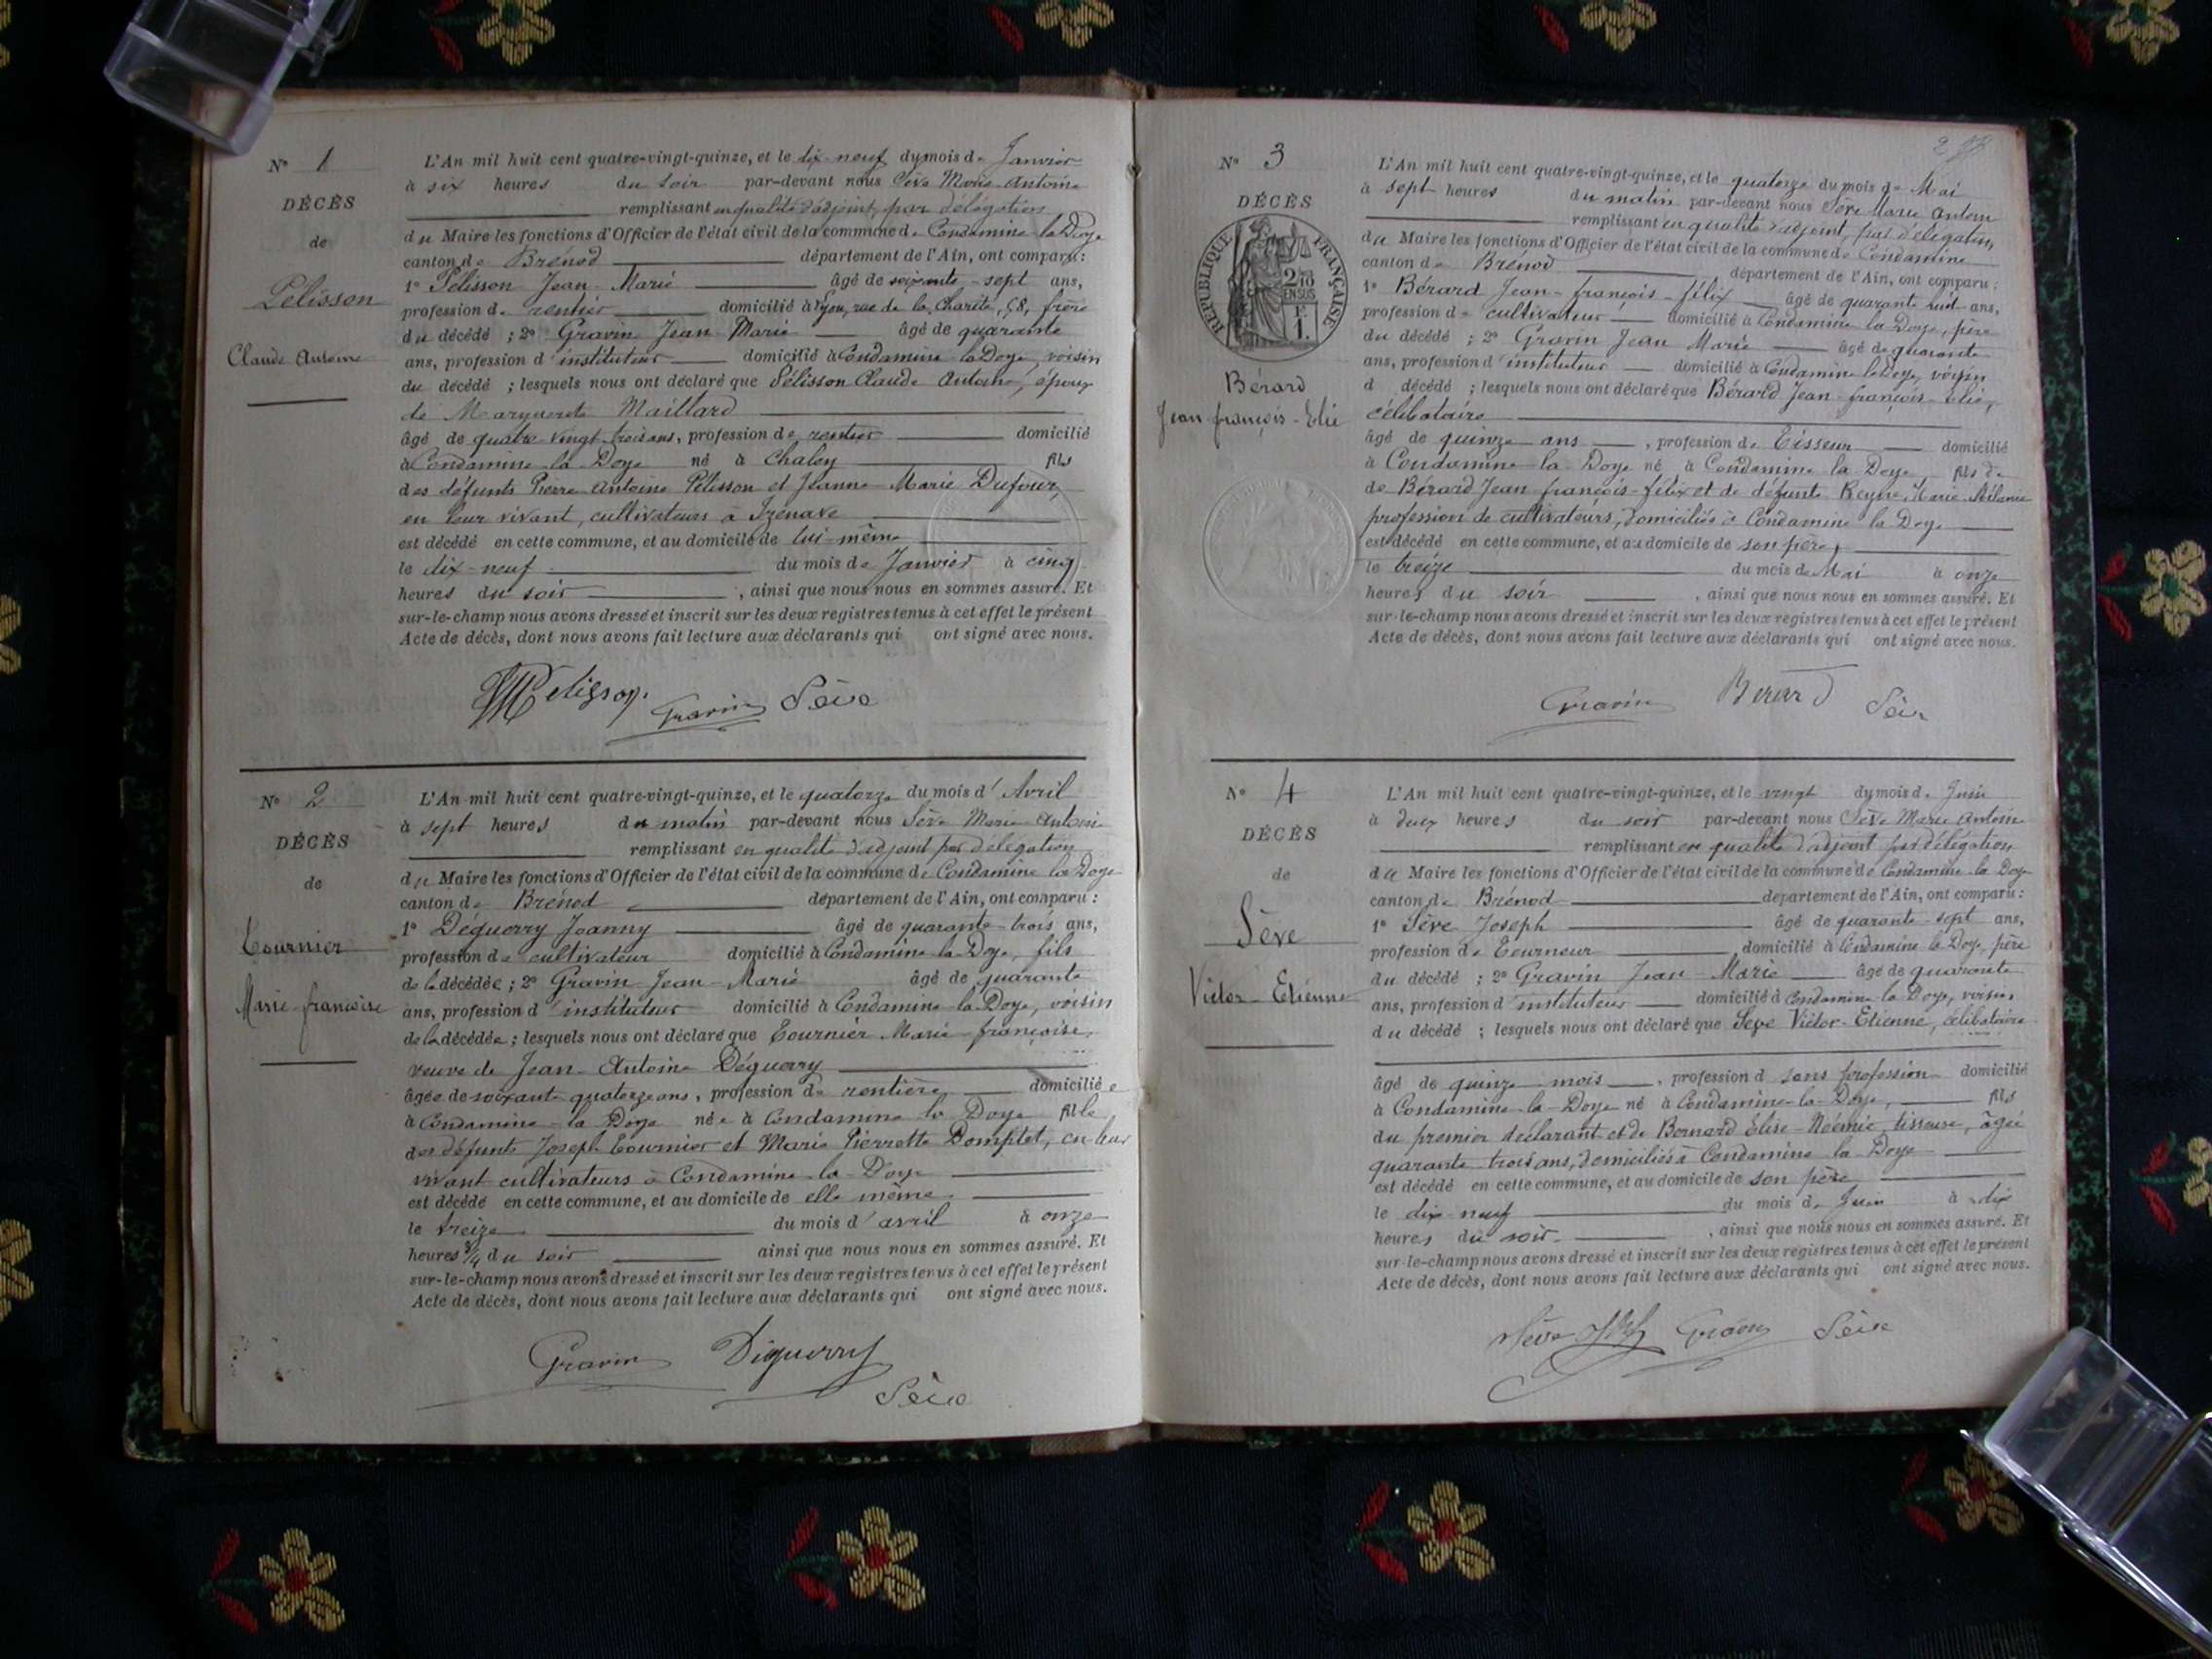 N° 1
DÉCÈS
de
Pélisson
Claude Antoine
L'An mil huit cent quatre-vingt-quinze, et le dix-neuf du mois de Janvier
à six heures du soir par-devant nous Sève Marie Antoine
remplissant en qualité d'adjoint, par délégation
du Maire les fonctions d'Officier de l'état civil de la commune de Condamine la Doye
canton de Brénod département de l'Ain, ont comparu :
1° Pélisson Jean-Marie âgé de soixante-sept ans,
profession de rentier domicilié à Lyon, rue de la Charité, 58, frère
du décédé ; 2° Gravin Jean Marie âgé de quarante
ans, profession d'instituteur domicilié à Condamine la Doye, voisin
du décédé ; lesquels nous ont déclaré que Pélisson Claude Antoine, époux
de Marguerite Maillard
âgé de quatre-vingt-trois ans, profession de rentier domicilié
à Condamine la Doye né à Chaley fils
des défunts Pierre Antoine Pélisson et Jeanne-Marie Dufour,
en leur vivant, cultivateurs à Izenave
est décédé en cette commune, et au domicile de lui-même
le dix-neuf du mois de Janvier à cinq
heures du soir, ainsi que nous nous en sommes assuré. Et
sur-le-champ nous avons dressé et inscrit sur les deux registres tenus à cet effet le présent
Acte de décès, dont nous avons fait lecture aux déclarants qui ont signé avec nous.
Pelisson Gravin Sève
N° 2
DÉCÈS
de
Tournier
Marie-françoise
L'An mil huit cent quatre-vingt-quinze, et le quatorze du mois d'Avril
à sept heures du matin par-devant nous Sève Marie Antoine
remplissant en qualité d'adjoint par délégation
du Maire les fonctions d'Officier de l'état civil de la commune de Condamine la Doye
canton de Brénod département de l'Ain, ont comparu :
1° Déguerry Joanny âgé de quarante-trois ans,
profession de cultivateur domicilié à Condamine-la-Doye, fils
de la décédée ; 2° Gravin Jean-Marie âgé de quarante
ans, profession d'instituteur domicilié à Condamine-la-Doye, voisin
de la décédée ; lesquels nous ont déclaré que Tournier Marie-françoise,
veuve de Jean-Antoine Déguerry
âgée de soixante quatorze ans, profession de rentière domiciliée
à Condamine-la Doye née à Condamine la Doye fille
des défunts Joseph Tournier et Marie Pierrette Domptet, en leur
vivant cultivateurs à Condamine-la-Doye
est décédé en cette commune, et au domicile de elle même
le treize du mois d'avril à onze
heures 3/4 du soir ainsi que nous nous en sommes assuré. Et
sur-le-champ nous avons dressé et inscrit sur les deux registres tenus à cet effet le présent
Acte de décès, dont nous avons fait lecture aux déclarants qui ont signé avec nous.
Gravin Déguerry
Sève
N° 3
DÉCÈS
RÉPUBLIQUE FRANÇAISE
2/10 EN SUS
Bérard
Jean françois-Elie
L'An mil huit cent quatre-vingt-quinze, et le quatorze du mois de Mai
à sept heures du matin par-devant nous Sève Marie Antoine
remplissant en qualité d'adjoint, par délégation
du Maire les fonctions d'Officier de l'état civil de la commune de Condamine
canton de Brénod département de l'Ain, ont comparu :
1° Bérard Jean-françois-félix âgé de quarante huit ans,
profession de cultivateur domicilié à Condamine la Doye, père
du décédé ; 2° Gravin Jean Marie âgé de quarante
ans, profession d'instituteur domicilié à Condamine la Doye, voisin
d décédé ; lesquels nous ont déclaré que Bérard Jean-françois-Elie,
célibataire
âgé de quinze ans, profession de Tisseur domicilié
à Condamine-la-Doye né à Condamine-la-Doye fils de
de Bérard Jean françois-félix et de défunte Reyne Marie-Mélanie
profession de cultivateurs, domiciliés à Condamine la Doye
est décédé en cette commune, et au domicile de son père,
le treize du mois de Mai à onze
heures du soir, ainsi que nous nous en sommes assuré. Et
sur-le-champ nous avons dressé et inscrit sur les deux registres tenus à cet effet le présent
Acte de décès, dont nous avons fait lecture aux déclarants qui ont signé avec nous.
Gravin Berard Sève
N° 4
DÉCÈS
de
Sève
Victor-Etienne
L'An mil huit cent quatre-vingt-quinze, et le vingt du mois de Juin
à deux heures du soir par-devant nous Sève Marie Antoine
remplissant en qualité d'adjoint par délégation
du Maire les fonctions d'Officier de l'état civil de la commune de Condamine la Doye
canton de Brénod département de l'Ain, ont comparu :
1° Sève Joseph âgé de quarante-sept ans,
profession de Tourneur domicilié à Condamine la Doye, père
du décédé ; 2° Gravin Jean-Marie âgé de quarante
ans, profession d'instituteur domicilié à Condamine la Doye, voisin
du décédé ; lesquels nous ont déclaré que Sève Victor-Etienne, célibataire
âgé de quinze mois, profession d sans profession domicilié
à Condamine-la-Doye né à Condamine-la-Doye, fils
du premier déclarant et de Bernard Élise-Noémie, tisseuse, âgée
quarante-trois ans, domiciliés à Condamine la Doye
est décédé en cette commune, et au domicile de son père
le dix-neuf du mois de Juin à dix
heures du soir, ainsi que nous nous en sommes assuré. Et
sur-le-champ nous avons dressé et inscrit sur les deux registres tenus à cet effet le présent
Acte de décès, dont nous avons fait lecture aux déclarants qui ont signé avec nous.
Sève Jph Gravin Sève